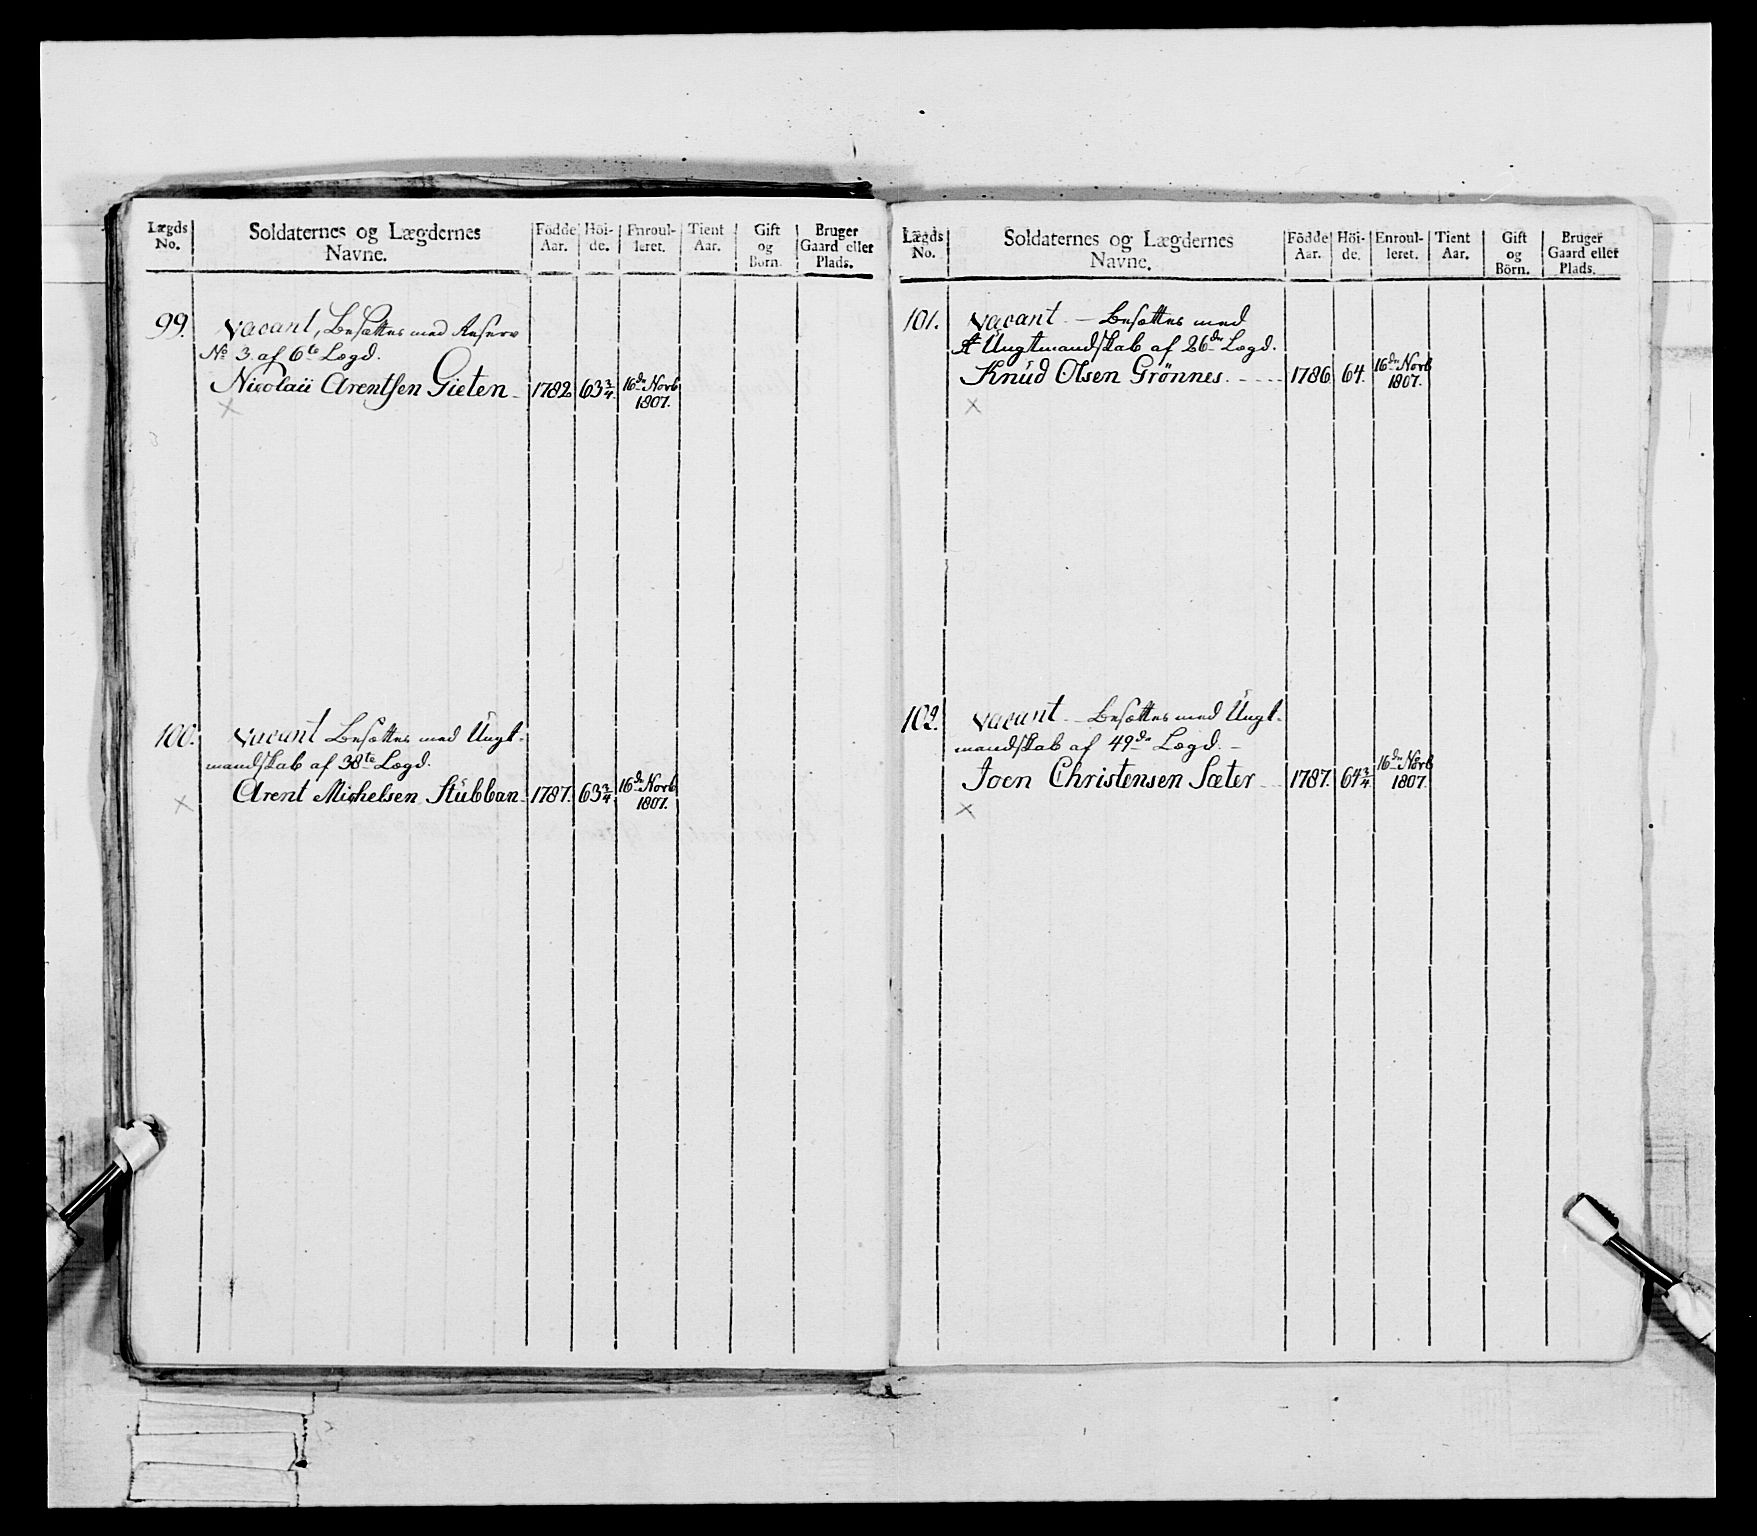 Lægds No. Soldaternes og Lægdernes Navne. Födde Aar. Höi-de. Enroul-leret. Tient Aar. Gift og Börn. Bruger Gaard eller Plads.
99. Vacant, Besættes med Reserv
No 3. af 6te Lægd.
Nicolaii Arentsen Gieten 1782 63 3/4. 16de Novb 1807.
100. Vacant Besættes med Ungt-
mandskab af 38te Lægd.
Arent Michelsen Stübban 1787. 63 3/4. 16de Novb 1807.
Lægds No. Soldaternes og Lægdernes Navne. Födde Aar. Höi-de. Enroul-leret. Tient Aar. Gift og Börn. Bruger Gaard eller Plads.
101. Vacant. – Besættes med
Et Ungtmandskab af 26de Lægd.
Knud Olsen Grönnes. 1786 64. 16de Novb 1807.
102. Vacant. – Besættes med Ungt-
mandskab af 49de Lægd. –
Joen Christensen Sæter 1787. 64 3/4 16de Novb 1807.